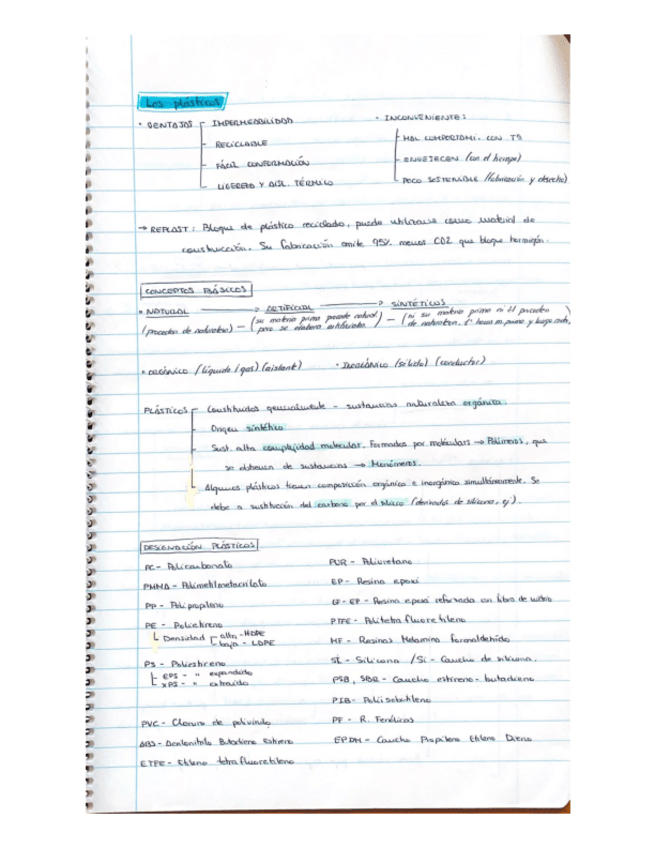 Los plásticos
• VENTAJAS
IMPERMEABILIDAD
RECICLABLE
FÁCIL CONFORMACIÓN
LIGEREZA Y AISL. TÉRMICO
• INCONVENIENTES
MAL COMPORTAMI. CON Tª
ENVEJECEN (con el tiempo)
POCO SOSTENIBLE (fabricación y desecho)
→ REPLAST: Bloque de plástico reciclado, puede utilizarse como material de
construcción. Su fabricación emite 95% menos CO2 que bloque hormigón.
CONCEPTOS BÁSICOS
• NATURAL → ARTIFICIAL → SINTÉTICOS
(proceden de naturaleza) — (su materia prima procede natural — (ni su materia prima ni él proceden
pero se elabora de naturaleza. 1º hacen m. prima y luego
• ORGÁNICO (líquido/gas) (aislante) • INORGÁNICO (sólido) (conductor)
PLÁSTICOS
Constituidos generalmente - sustancias naturaleza orgánica.
Origen sintético
Sust. alta complejidad molecular. Formados por moléculas → Polímeros, que
se obtienen de sustancias → Monómeros.
Algunos plásticos tienen composición orgánica e inorgánica simultáneamente. Se
debe a sustitución del carbono por el silicio (derivados de silicona, ej).
DESIGNACIÓN PLÁSTICOS
PC - Policarbonato
PMMA - Polimetilmetacrilato
PP - Polipropileno
PE - Polietileno
Densidad
alta - HDPE
baja - LDPE
PS - Poliestireno
EPS - " expandido
XPS - " extruido
PVC - Cloruro de polivinilo
ABS - Acrilonitilo Butadieno Estireno
ETFE - Etileno tetrafluoretileno
PUR - Poliuretano
EP - Resina epoxi
GF-EP - Resina epoxi reforzada con fibra de vidrio
PTFE - Politetrafluoretileno
MF - Resinas Melamina formaldehido
SI - Silicona / Si - Caucho de silicona.
PSB, SBR - Caucho estireno-butadieno
PIB - Poliisobutileno
PF - R. Fenólicas
EPDM - Caucho Propileno Etileno Dieno